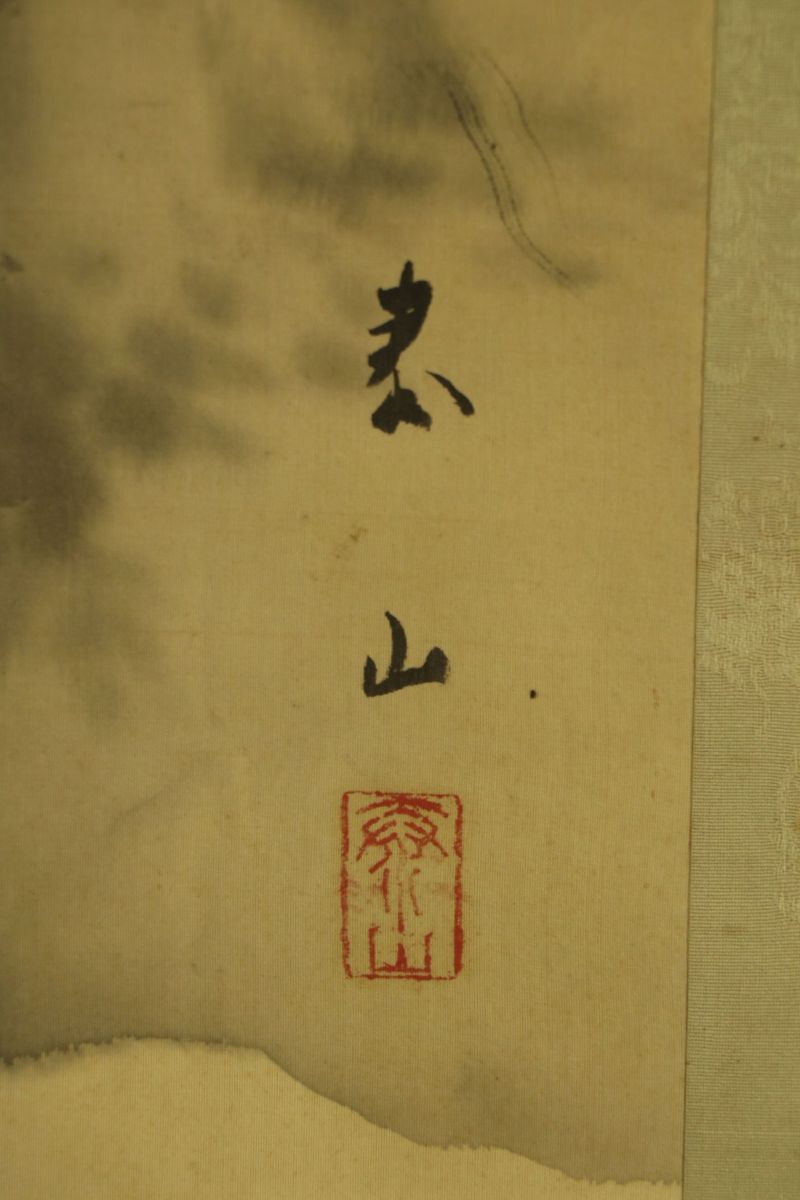 泰
山
泰山